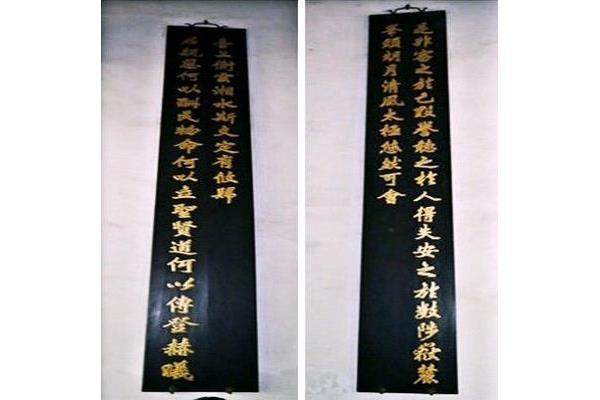 是非審之於己毀譽聽之於人得失安之於數陟嶽麓
峯頭朗月清風太極悠然可會
君親恩何以酬民物命何以立聖賢道何以傳登赫曦
臺上衡雲湘水斯文定有攸歸